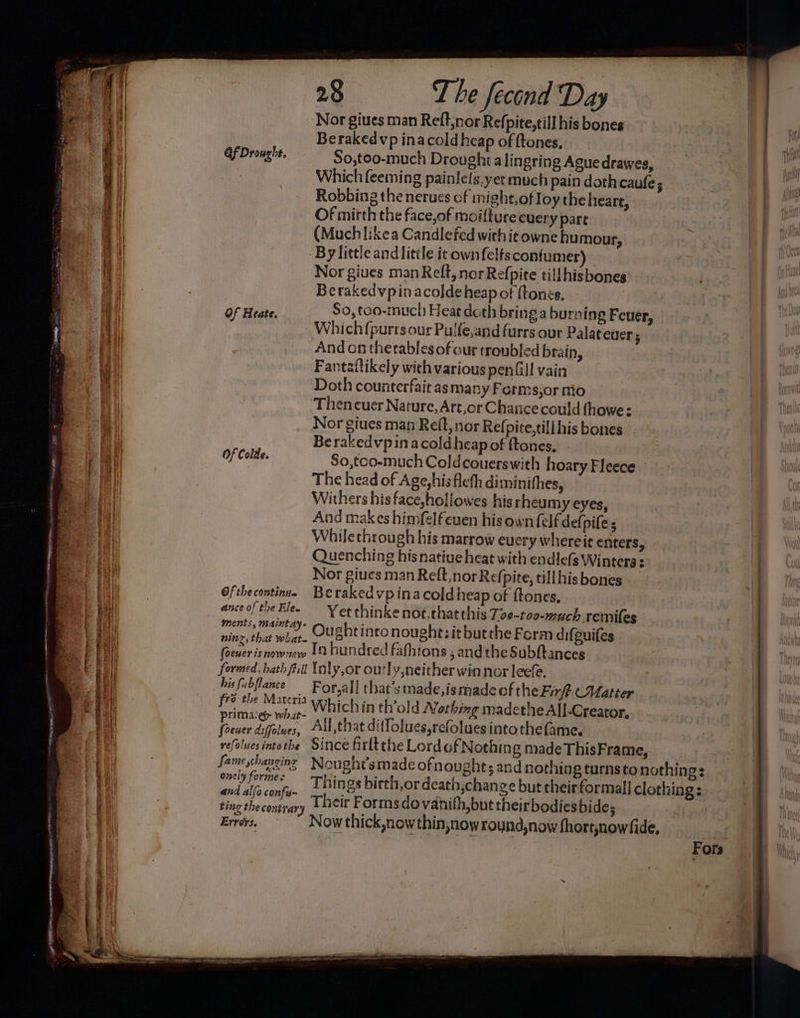 28 The ſecond Day
Nor giues man Reſt,nor Reſpite,till his bones
Beraked vp in a cold heap of ſtones.
Of Drought.
So,too-much Drought a lingring Ague drawes,
Which ſeeming painleſs,yet much pain doth cauſe;
Robbing the nerues of might,of Ioy the heart,
Of mirth the face,of moiſture euery part
(Much like a Candle fed with it owne humour,
By little and little it own ſelfs conſumer)
Nor giues man Reſt, nor Reſpite till his bones
Beraked vp in a colde heap of ſtones.
Of Heate.
So, too-much Heat doth bring a burning Feuer,
Which ſpurrs our Pulſe,and furrs our Palat euer;
And on the tables of our troubled brain,
Fantaſtikely with various penſill vain
Doth counterfait as many Forms,or mo
Then euer Nature, Art,or Chance could ſhowe:
Nor giues man Reſt, nor Reſpite,till his bones
Beraked vp in a cold heap of ſtones.
Of Colde.
So,too-much Cold couers with hoary Fleece
The head of Age,his fleſh diminiſhes,
Withers his face,hollowes his rheumy eyes,
And makes himſelf euen his own ſelf deſpiſe;
While through his marrow euery where it enters,
Quenching his natiue heat with endleſs Winters:
Nor giues man Reſt,nor Reſpite, till his bones
Beraked vp in a cold heap of ſtones.
Of the continu-
ance of the Ele-
ments, maintay-
ning, that what-
ſoeuer is now new
formed, hath ſtill
his ſubſtance
frō the Materia
prima:& what-
ſoeuer diſſolues,
reſolues into the
ſame,changing
onely forme:
and alſo confu-
ting the contrary
Errors.
Yet thinke not,that this Too-too-much remiſes
Ought into nought: it but the Form diſguiſes
In hundred faſhions ; and the Subſtances
Inly,or outly,neither win nor leeſe.
For,all that's made,is made of the Firſt Matter
Which in th'old Nothing made the All-Creator.
All,that diſſolues,reſolues into the ſame.
Since firſt the Lord of Nothing made This Frame,
Nought's made of nought; and nothing turns to nothing:
Things birth,or death,change but their formall clothing:
Their Forms do vaniſh,but their bodies bide;
Now thick,now thin,now round,now ſhort,now ſide,
Fors